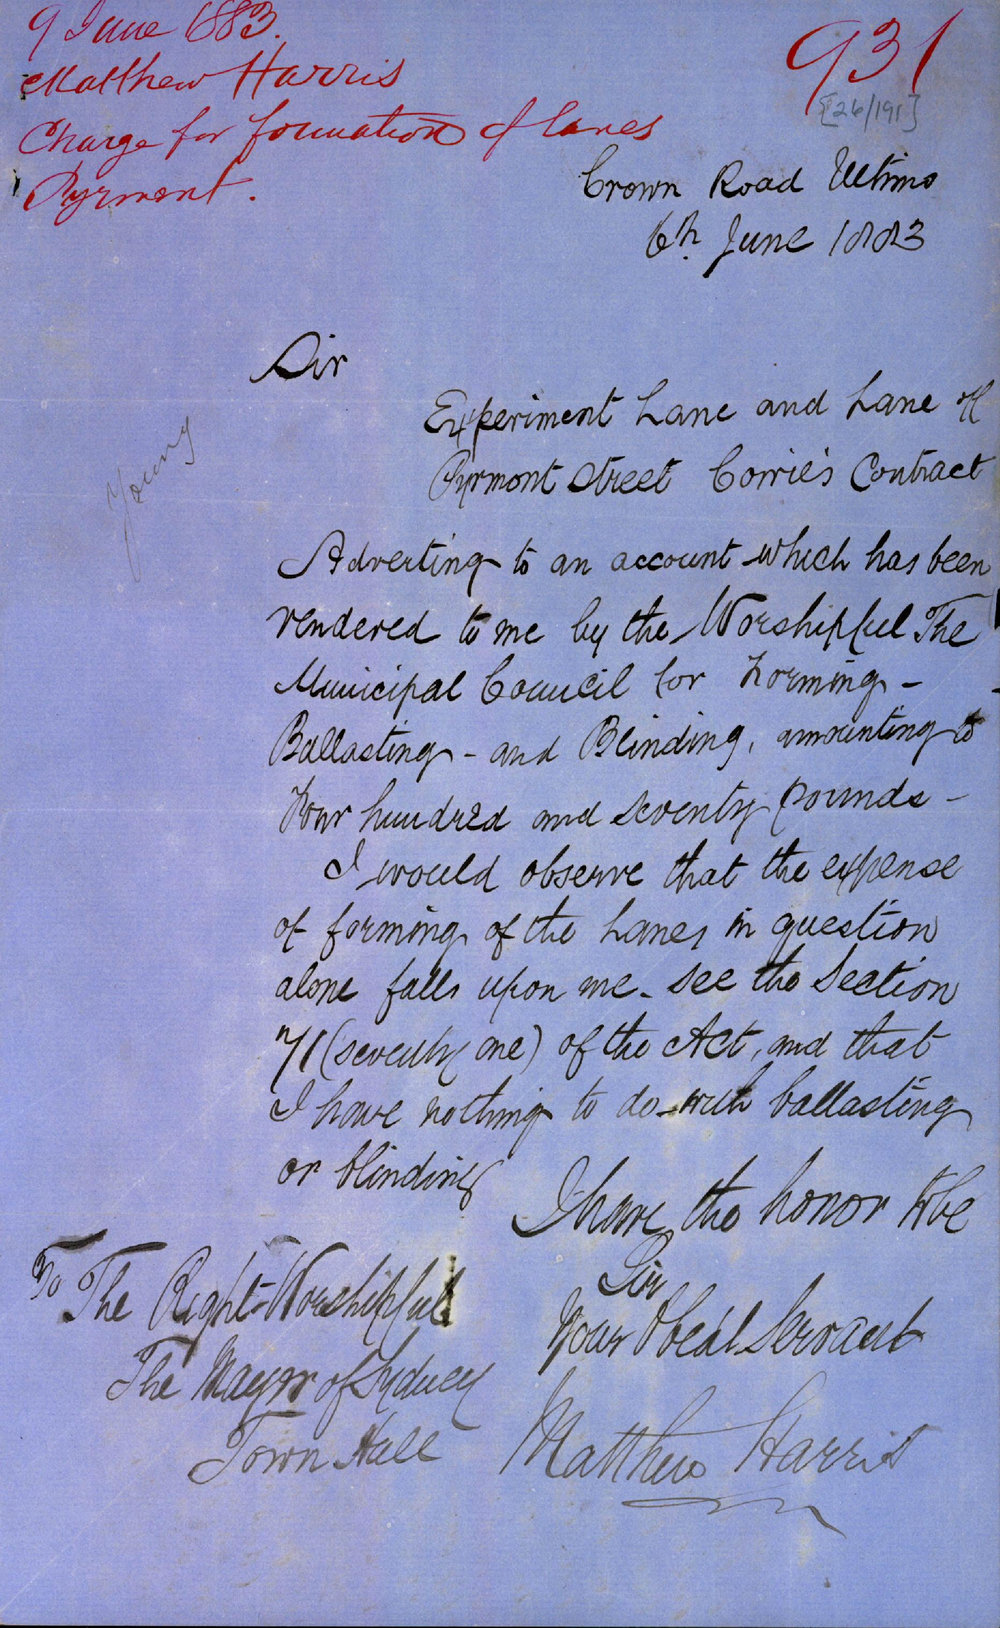 9 June 1883.
Matthew Harris
Charge for formation of lanes
Pyrmont.
931
[26/191]
Crown Road Ultimo
6th June 1883
Sir
Experiment Lane and Lane off
Pyrmont Street Corrie's Contract
Young
Adverting to an account which has been
rendered to me by the Worshipful The
Municipal Council for Forming -
Ballasting - and Blinding, amounting to
Four hundred and seventy pounds -
I would observe that the expense
of forming of the Lanes in question
alone falls upon me - see the Section
71 (seventy one) of the Act, and that
I have nothing to do with ballasting
or blinding
I have the honor to be
Sir
Your Obed't Servant
Matthew Harris
To The Right Worshipful
The Mayor of Sydney
Town Hall